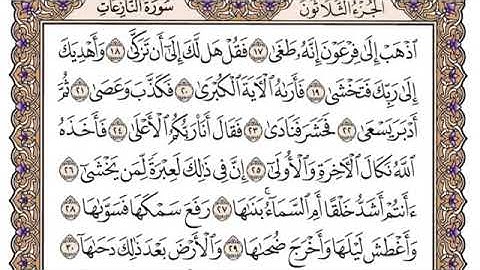 الجزء الثلاثون سورة النازعات
اذهب إلى فرعون إنه طغى ١٧ فقل هل لك إلى أن تزكى ١٨ وأهديك
إلى ربك فتخشى ١٩ فأراه الآية الكبرى ٢٠ فكذب وعصى ٢١ ثم
أدبر يسعى ٢٢ فحشر فنادى ٢٣ فقال أنا ربكم الأعلى ٢٤ فأخذه
الله نكال الآخرة والأولى ٢٥ إن في ذلك لعبرة لمن يخشى ٢٦
ءأنتم أشد خلقا أم السماء بناها ٢٧ رفع سمكها فسواها ٢٨
وأغطش ليلها وأخرج ضحاها ٢٩ والأرض بعد ذلك دحاها ٣٠